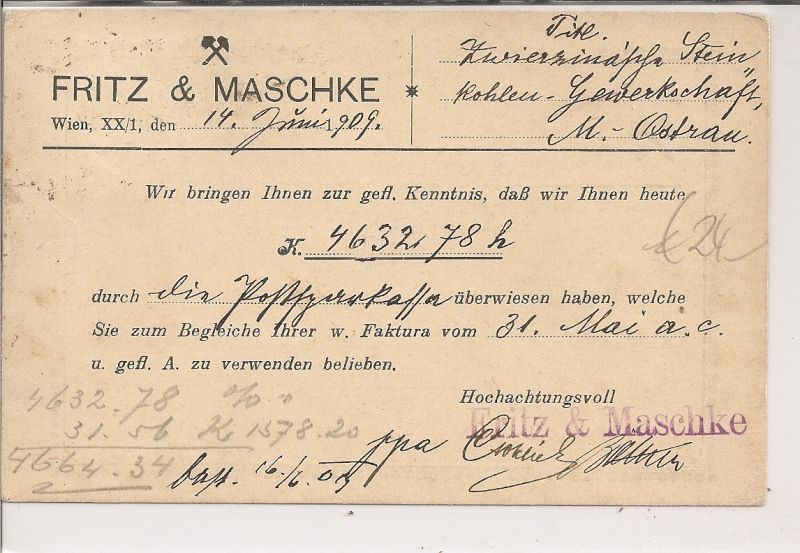 FRITZ & MASCHKE
Wien, XX/1, den 14. Juni 1909.
Titl.
Zwierzina'sche Stein
kohlen-Gewerkschaft,
M.-Ostrau.
Wir bringen Ihnen zur gefl. Kenntnis, daß wir Ihnen heute
K. 4632.78 h
24
durch die Postsparkassa überwiesen haben, welche
Sie zum Begleiche Ihrer w. Faktura vom 31. Mai a.c.
u. gefl. A. zu verwenden belieben.
Hochachtungsvoll
Fritz & Maschke
ppa
4632.78
31.56 K 1578.20
4664.34
16./6. 09